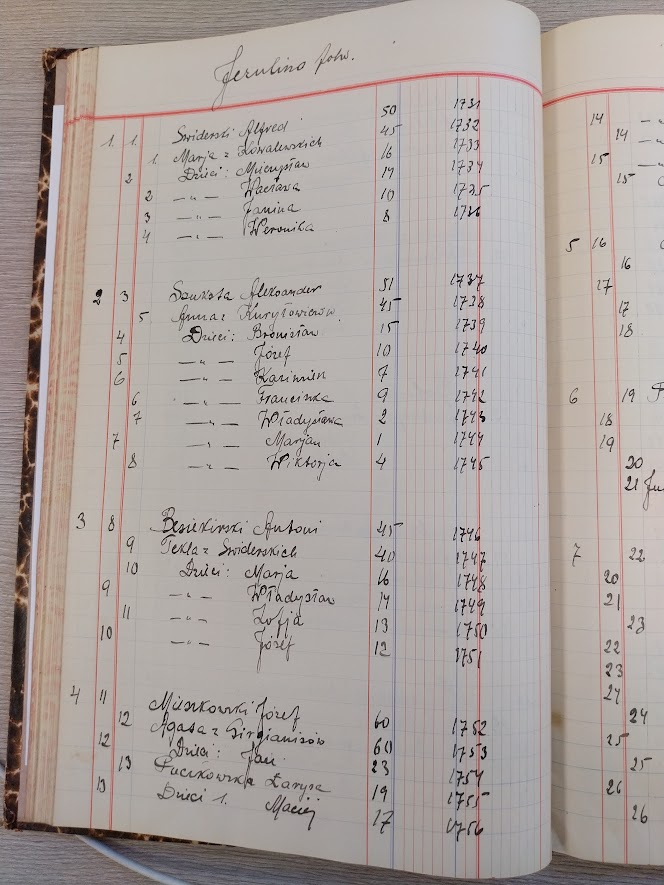 Jerulino folw.
1. 1. Swiderski Alfred 50 1731
1. Marja z Kowalewskich 45 1732
2 Dzieci: Mieczysław 16 1733
2 -"- Wacława 14 1734
3 -"- Janina 10 1735
4 -"- Weronika 8 1736
2 3 Szukota Aleksander 51 1737
5 Anna z Kuryłowiczów 45 1738
4 Dzieci: Bronisław 15 1739
5 -"- Józef 10 1740
6 -"- Kazimierz 7 1741
6 -"- Franciszka 9 1742
7 -"- Władysława 2 1743
7 -"- Marjan 1 1744
8 -"- Wiktorja 4 1745
3 8 Antoni 45 1746
9 Tekla z Swiderskich 40 1747
10 Dzieci: Marja 16 1748
9 -"- Władysław 14 1749
11 -"- Zofja 13 1750
10 -"- Józef 12 1751
4 11 Mieszkowski Józef 60 1752
12 Agata z 60 1753
12 Dzieci: Jan 23 1754
13 Puczkowska Łarysa 19 1755
13 Dzieci 1. Maciej 17 1756
14 -"-
14 -"-
15 -"-
15
5 16
16
17
17
18
6 19
18
19
20
21
7 22
20
21
23
22
23
24
24
25
25
26
26